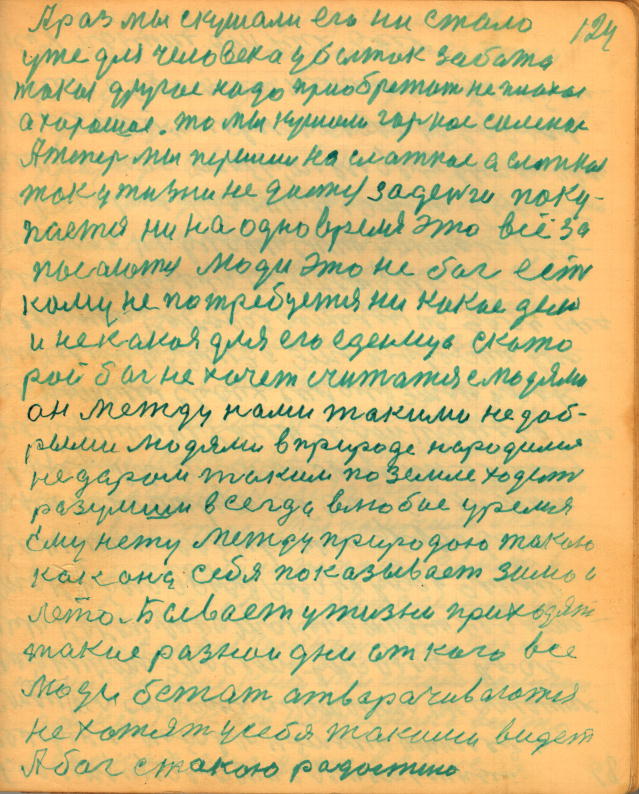 А раз мы скушали его ни стало 124
уже для человека убыток забота
такая другое надо приобретат не плохое
а хорошое. то мы кушали горкое соленое
А тепер мы перешли на слаткое а слатко
току жизни не даст/ за денги поку-
пается ни на одно время Это всё за
люди Это не бог ест
кому не потребуется ни какое дело
и не какая для его еденица с кото
рой бог не хочет считатя с людями
он между нами такими недоб-
рыми людями в природе народился
недаром таким по земле ходит
всегда в любое уремя
Ему нету между природою такою
как она себя показывает зимой
лето. Бывает у жизни приходят
такие разнои дни от кого все
люди атварачиваются
не хотят у себя такими видет
А бог с такою радостию